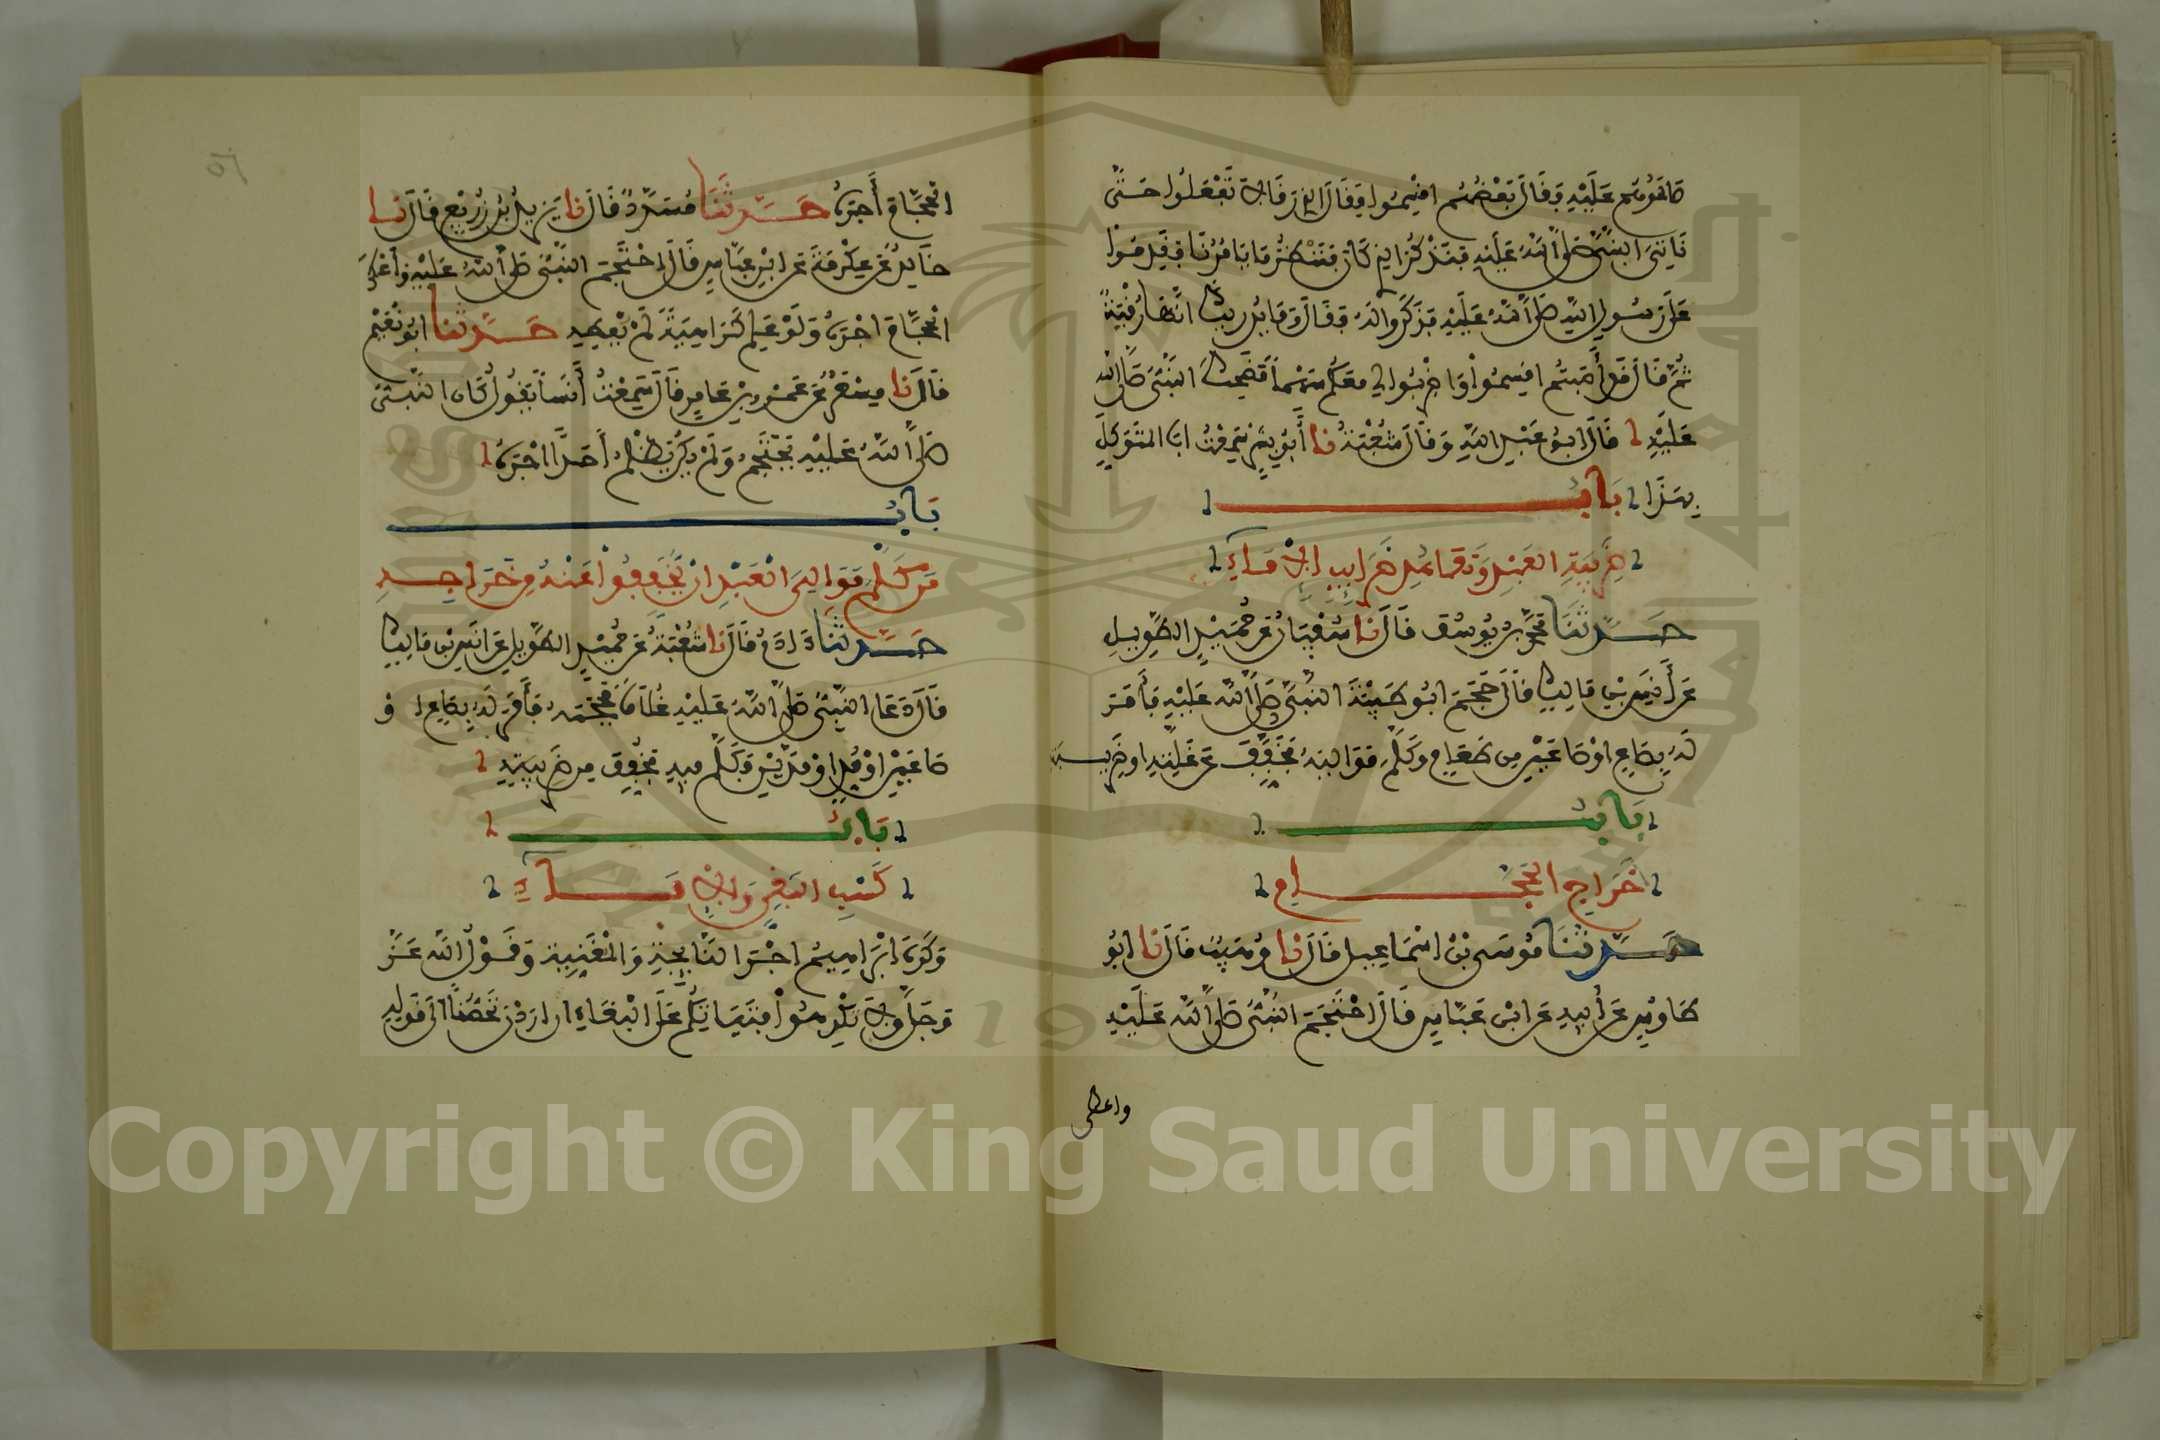 صالحوهم عليه فقال بعضهم اقسموا فقال الذي رقا لا تفعلوا حتى
ناتي النبي صلى الله عليه فنذكر له الذي كان فننظر ما يامرنا فقدموا
على رسول الله صلى الله عليه فذكروا له فقال وما يدريك انها رقية
ثم قال قد أصبتم اقسموا واضربوا لي معكم سهما فضحك النبي صلى الله
عليه قال ابو عبد الله وقال شعبة نا أبو بشر سمعت ابا المتوكل
بهذا باب
ضريبة العبد وتعاهد ضرايب الاماء
حدثنا محمد بن يوسف قال نا سفيان عن حميد الطويل
عن أنس بن مالك قال حجم ابو طيبة النبي صلى الله عليه فأمر
له بصاع او صاعين من طعام وكلم مواليه فخفف عن غلته او ضريبته
باب
خراج الحجام
حدثنا موسى بن اسماعيل قال نا وهيب قال نا ابن
طاوس عن أبيه عن ابن عباس قال احتجم النبي صلى الله عليه
واعطى
٥٦
الحجام أجره حدثنا مسدد قال نا يزيد بن زريع قال نا
خالد عن عكرمة عن ابن عباس قال احتجم النبي صلى الله عليه وأعطى
الحجام اجره ولو علم كراهية لم يعطه حدثنا ابو نعيم
قال نا مسعر عن عمرو بن عامر قال سمعت أنسا يقول كان النبي
صلى الله عليه يحتجم ولم يكن يظلم أحدا اجره
باب
من كلم موالي العبد ان يخففوا عنه من خراجه
حدثنا ءادم قال نا شعبة عن حميد الطويل عن انس بن مالك
قال دعا النبي صلى الله عليه غلاما فحجمه فأمر له بصاع او
صاعين او مد او مدين وكلم فيه فخفف من ضريبته
باب
كسب البغي والاماء
وكره ابراهيم اجر النايحة والمغنية وقول الله عز
وجل ولا تكرهوا فتياتكم على البغاء ان اردن تحصنا الى قوله
Copyright © King Saud University